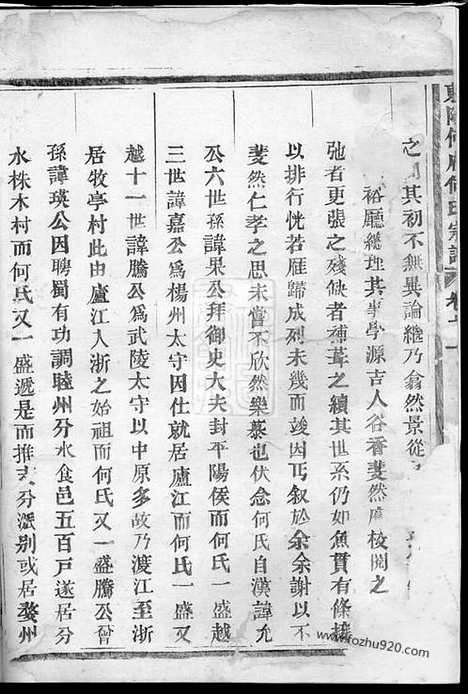 東陽何府何氏宗譜 卷之一
之間其初不無異論繼乃翕然景從
裕廳總理其事學源吉人谷香斐然 校閱之
弛者更張之殘缺者補葺之續其世系仍如魚貫有條據
以排行恍若雁歸成列未幾而竣因丐叙於余余謝以不
斐然仁孝之思未嘗不欣然樂慕也伏念何氏自漢諱允
公六世孫諱果公拜御史大夫封平陽侯而何氏一盛越
三世諱嘉公爲楊州太守因仕就居廬江而何氏一盛又
越十一世諱騰公爲武陵太守以中原多故乃渡江至浙
居牧亭村此由廬江入浙之始祖而何氏又一盛騰公曾
孫諱瑛公因聘蜀有功調睦州分水食邑五百戶遂居分
水株木村而何氏又一盛遞是而推支分派別或居婺州
www.fozhu920.com